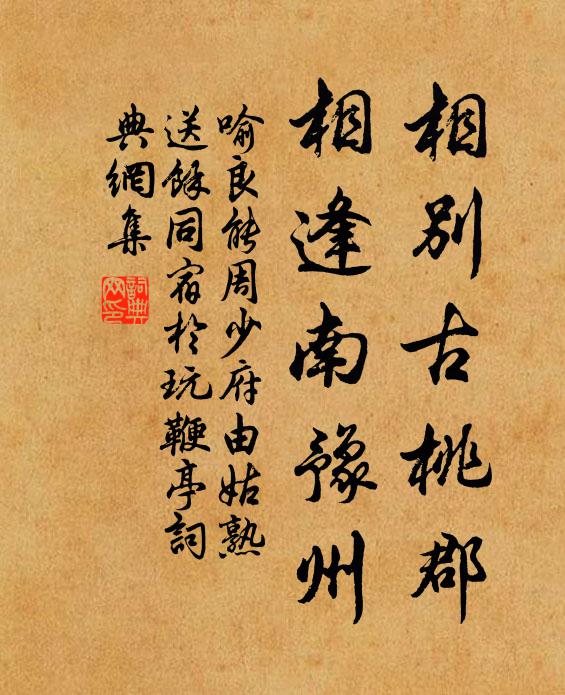 相別古桃郡
相逢南豫州
喻良能周少府由姑熟
送餘同宿於玩鞭亭詞
典網集
詞典網印